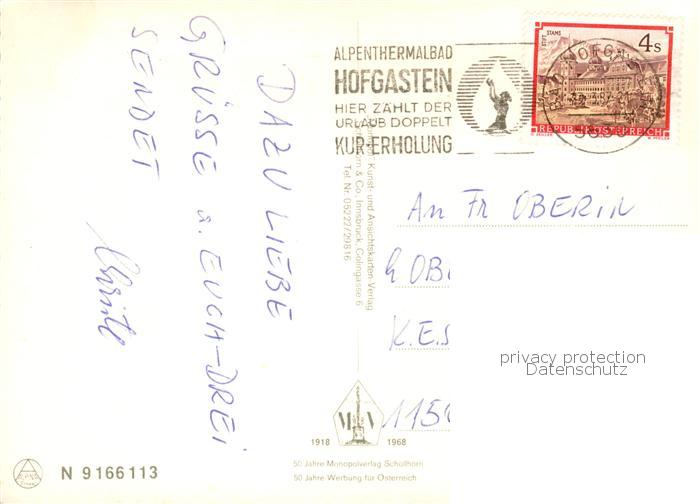 DAZU LIEBE
GRÜSSE u. EUCH-DREI
SENDET
ALPENTHERMALBAD
HOFGASTEIN
HIER ZÄHLT DER
URLAUB DOPPELT
KUR-ERHOLUNG
STIFT STAMS
4 S
REPUBLIK ÖSTERREICH
Kunst- und Ansichtskarten-Verlag
& Co., Innsbruck, Colingasse 6
Tel. Nr. 05222/29816
An Fr OBERIN
K.E.S
115
privacy protection
Datenschutz
1918 MV 1968
50 Jahre Monopolverlag Schöllhorn
50 Jahre Werbung für Österreich
N 9166113